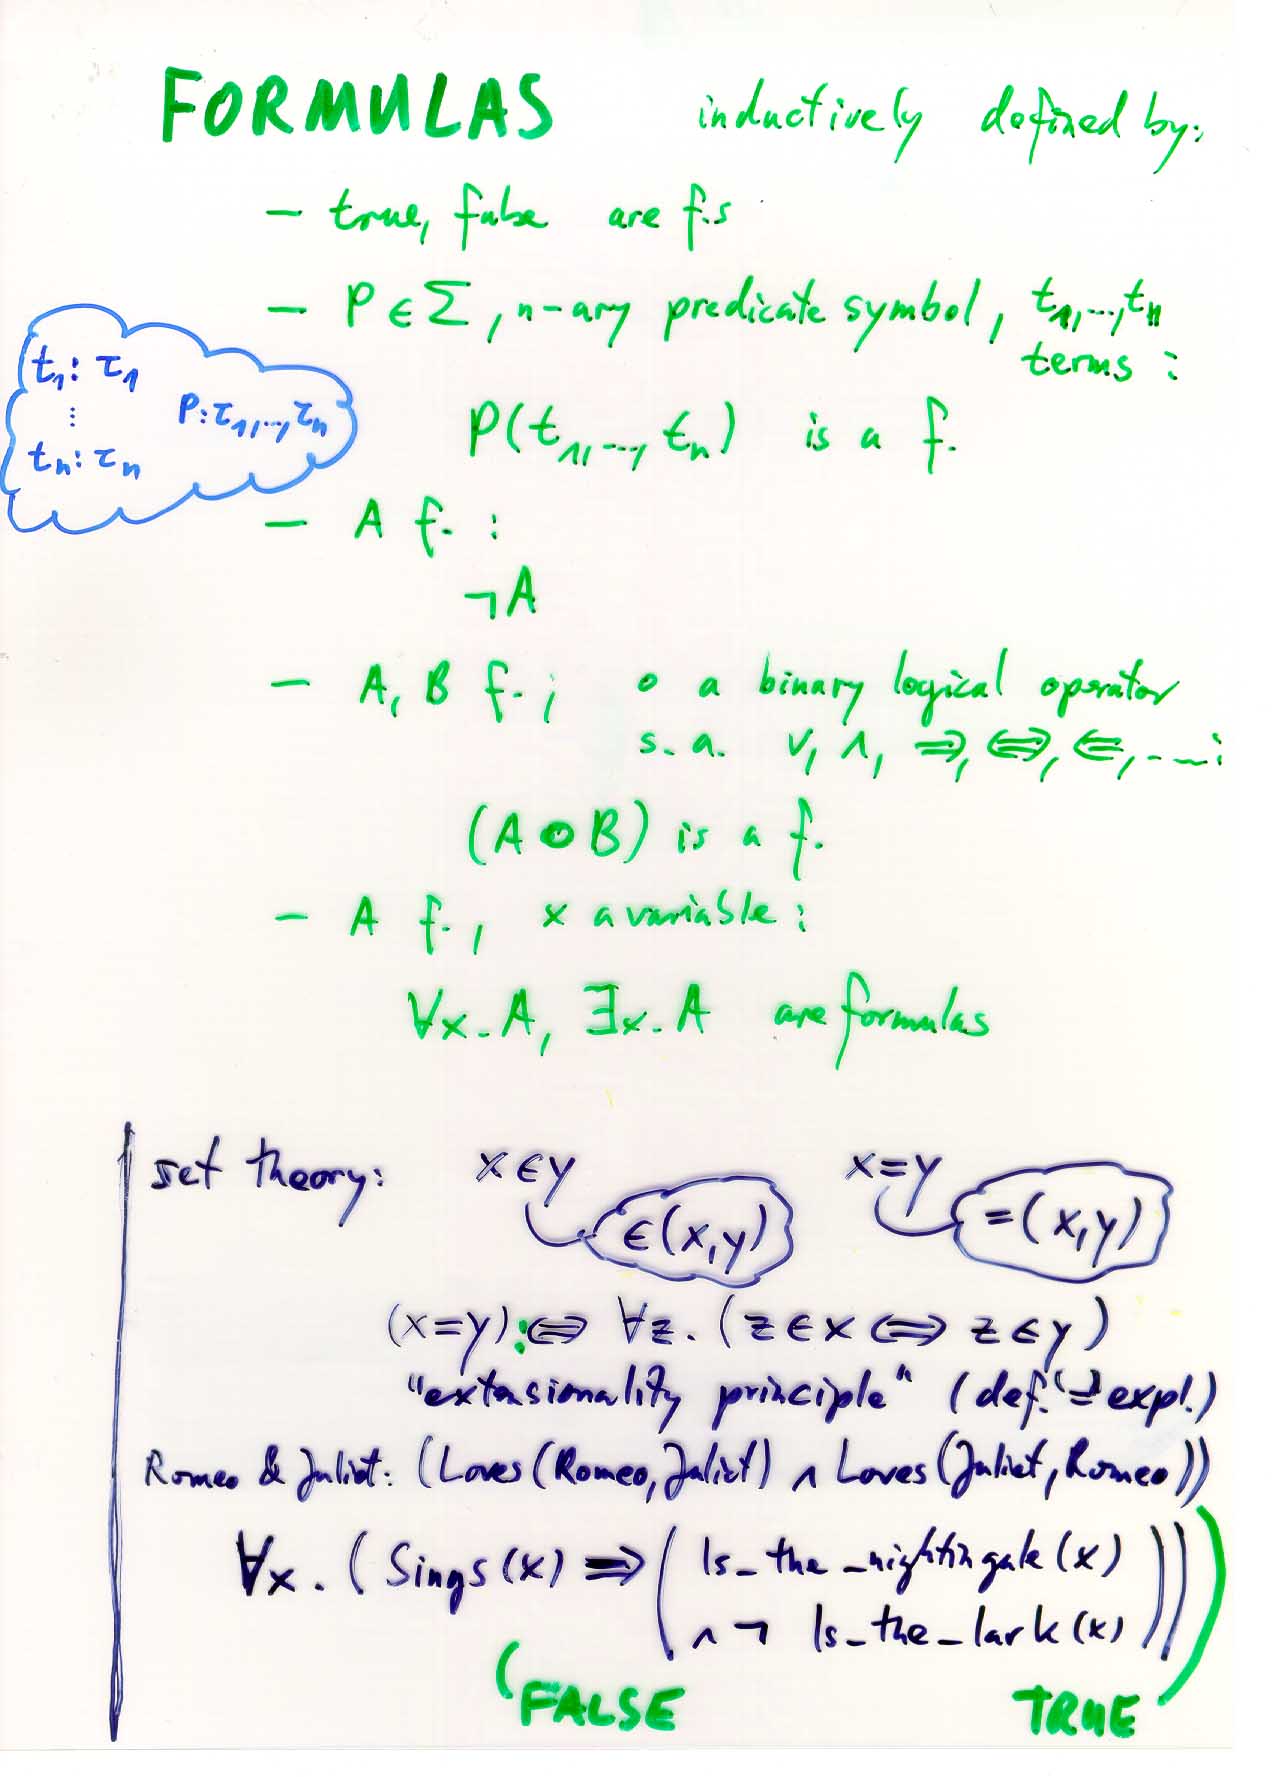 FORMULAS inductively defined by:
– true, false are f.s
– P ∈ Σ, n-ary predicate symbol, t₁,...,tₙ
terms :
t₁: τ₁
⋮
P: τ₁,..,τₙ
tₙ: τₙ
P(t₁,...,tₙ) is a f.
– A f. :
¬A
– A, B f. ; o a binary logical operator
s. a. ∨, ∧, ⇒, ⇔, ⇐, ... :
(A o B) is a f.
– A f., x a variable :
∀x. A, ∃x. A are formulas
set theory: x ∈ y x = y
∈(x,y) =(x,y)
(x=y) :⇔ ∀z. (z ∈ x ⇔ z ∈ y)
"extensionality principle" (def. "=" expl.)
Romeo & Juliet: (Loves(Romeo, Juliet) ∧ Loves(Juliet, Romeo))
∀x. (Sings(x) ⇒ ( Is_the_nightingale(x)
∧ ¬ Is_the_lark(x) ))
(FALSE TRUE